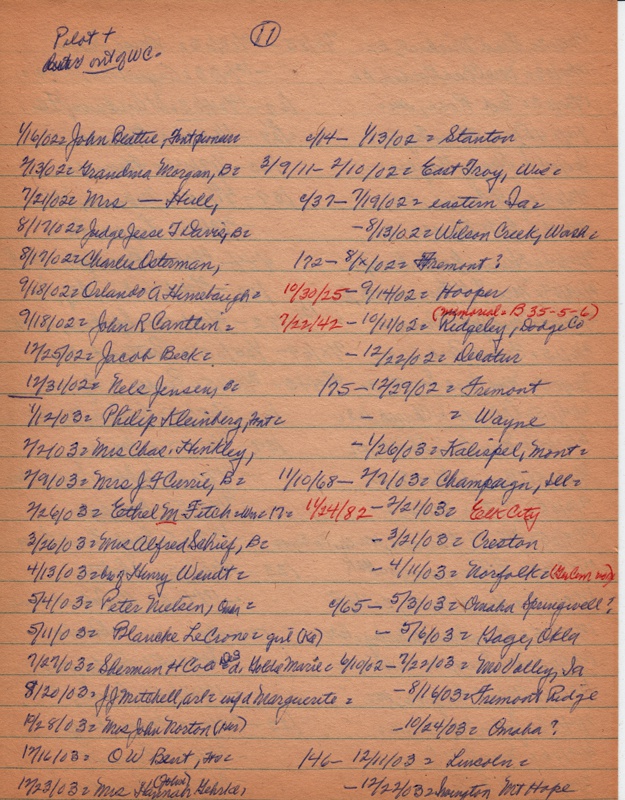 Pilot +
out of WC
11
1/16/02 = John Beattie, c/14 — 1/13/02 = Stanton
2/13/02 = Grandma Morgan, B= 3/9/11 — 2/10/02 = East Troy, Wis=
7/21/02 = Mrs — Hull, c/37 — 7/19/02 = eastern Ia=
8/17/02 = Judge Jesse T Davis, B= — 8/13/02 = Wilson Creek, Wash=
8/17/02 = Charles Osterman, 172 — 8/x/02 = Fremont?
9/18/02 = Orlando A Himebaugh = 10/30/25 — 9/14/02 = Hooper
(memorial = B 35-5-6)
9/18/02 = John R Cantlin = 7/22/42 — 10/11/02 = Ridgeley, Dodge Co
12/25/02 = Jacob Beck = — 12/22/02 = Decatur
12/31/02 = Nels Jensen, 175 — 12/29/02 = Fremont
1/12/03 = Philip Kleinberg, — = Wayne
2/2/03 = Mrs Chas. Hinkley, — 1/26/03 = Kalispel, Mont=
2/9/03 = Mrs J F Currie, B= 11/10/68 — 2/7/03 = Champaign, Ill=
2/26/03 = Ethel M Fitch = 17= 1/24/82 — 2/21/03 = Elk City
3/26/03 = Mrs Alfred Schief, B= — 3/21/03 = Creston
4/13/03 = Henry Wendt = — 4/11/03 = Norfolk =
5/4/03 = Peter Nielsen, c/65 — 5/3/03 = Omaha Springwell?
5/11/03 = Blanche LeCrone = girl — 5/6/03 = Gage, Okla
7/27/03 = Sherman H Coe d, Goldie Marie = 6/10/02 — 7/22/03 = Mo Valley, Ia
8/20/03 = J J Mitchell, w/d Marguerite = — 8/16/03 = Fremont Ridge
10/28/03 = Mrs John Norton — 10/24/03 = Omaha?
12/16/03 = O W Bent, 146 — 12/11/03 = Lincoln =
12/23/03 = Mrs Hannah (John) Gehrke, — 12/22/03 = Irvington Mt Hope